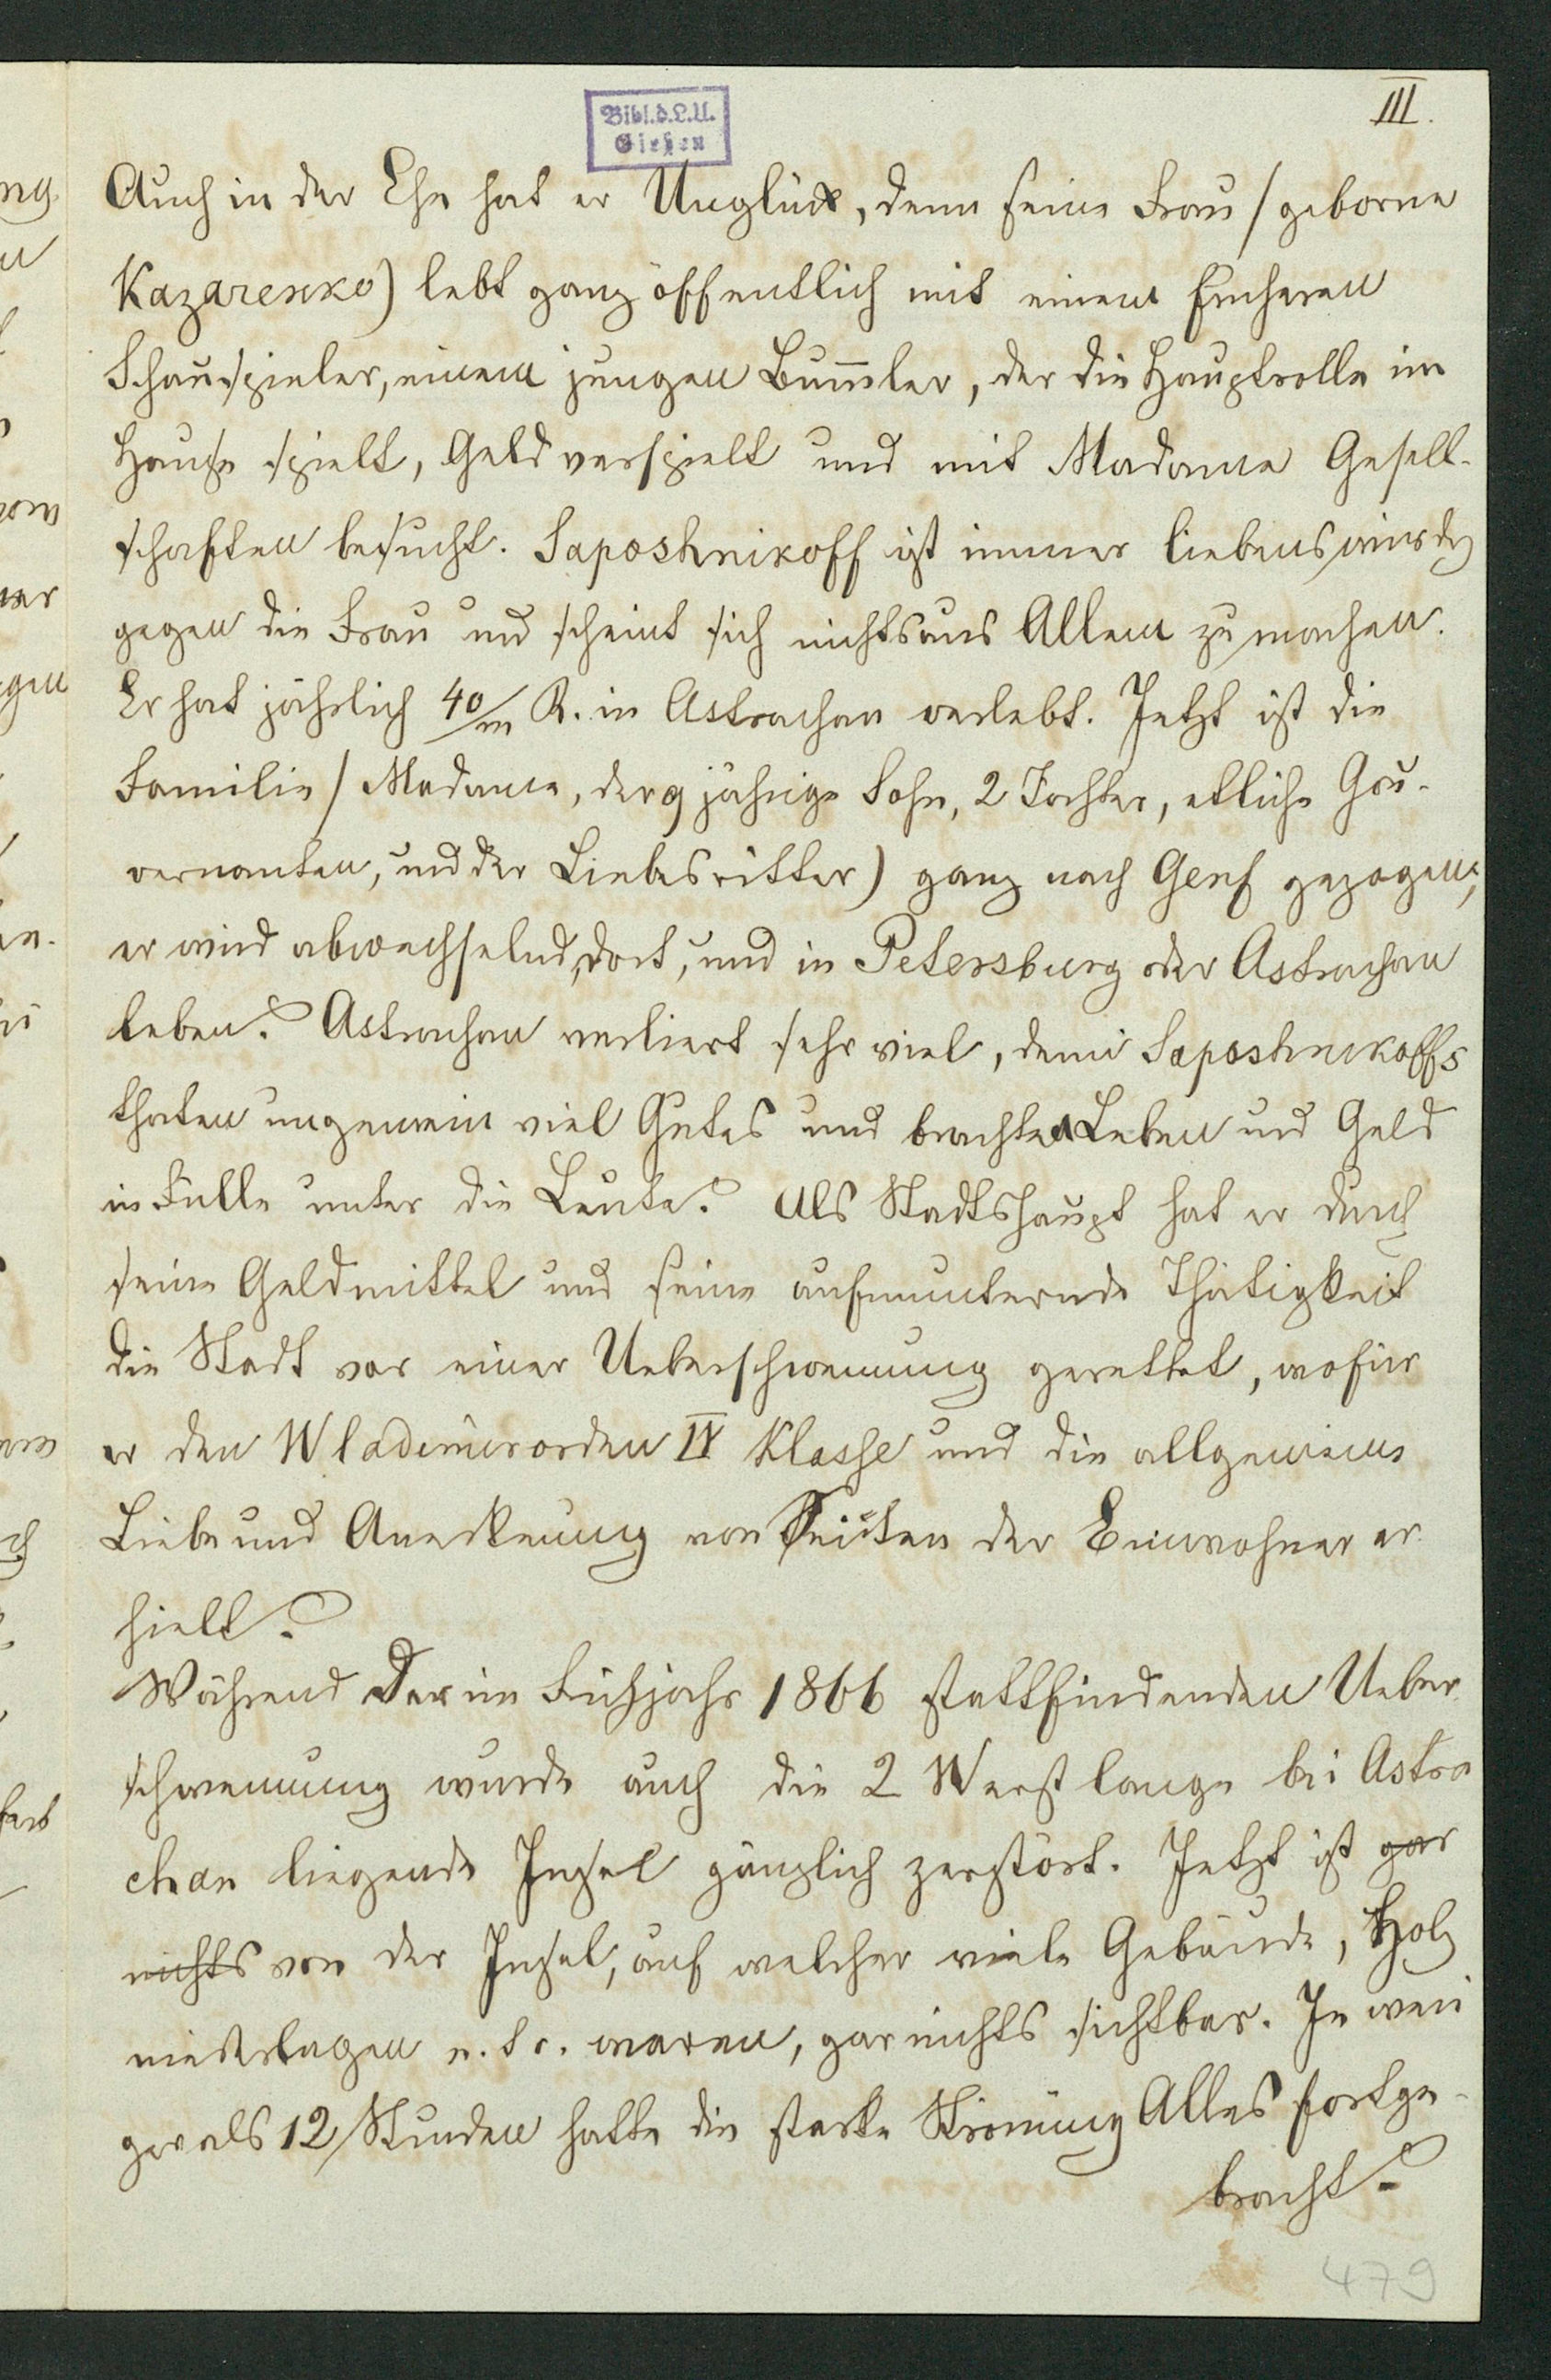 III.
Bibl.d.L.U.
Gießen
Auch in der Ehe hat er Unglück, denn seine Frau (geborne
Kazarenko) lebt ganz öffentlich mit einem früheren
Schauspieler, einem jungen Bum̄ler, der die Hauptrolle im
Hause spielt, Geld verspielt und mit Madame Gesell-
schaften besucht. Saposhnikoff ist immer liebenswürdig
gegen die Frau und scheint sich nichts aus Allem zu machen.
Er hat jährlich 40/m R. in Astrachan verlebt. Jetzt ist die
Familie (Madame, der 9 jährige Sohn, 2 Töchter, etliche Gou-
vernanten, und der Liebesritter) ganz nach Genf gezogen;
er wird abwechselnd, dort, und in Petersburg oder Astrachan
leben. Astrachan verliert sehr viel, denn Saposhnikoffs
thaten ungemein viel Gutes und brachten Leben und Geld
in Fülle unter die Leute. Als Stadtshaupt hat er durch
seine Geldmittel und seine aufmunternde Thätigkeit
die Stadt vor einer Ueberschwemung gerettet, wofür
er den Wladimirorden IV Klasse und die allgemeine
Liebe und Anerkenung von Seiten der Einwohner er
hielt.
Während der im Frühjahr 1866 stattfindenden Ueber
schwemung wurde auch die 2 Werst lange bei Astra
chan liegende Insel gänzlich zerstört. Jetzt ist gar
nichts von der Insel, auf welcher viele Gebäude, Holz
niederlagen waren, gar nichts sichtbar. In weni
ger als 12 Stunden hatte die starke Strömung Alles fortge-
bracht.
479